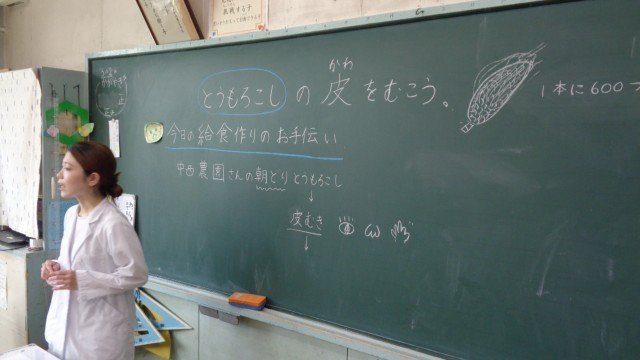 かわ
とうもろこしの皮をむこう。
1本に600
今日の給食作りのお手伝い
中西農園さんの朝どりとうもろこし
↓
皮むき
↓